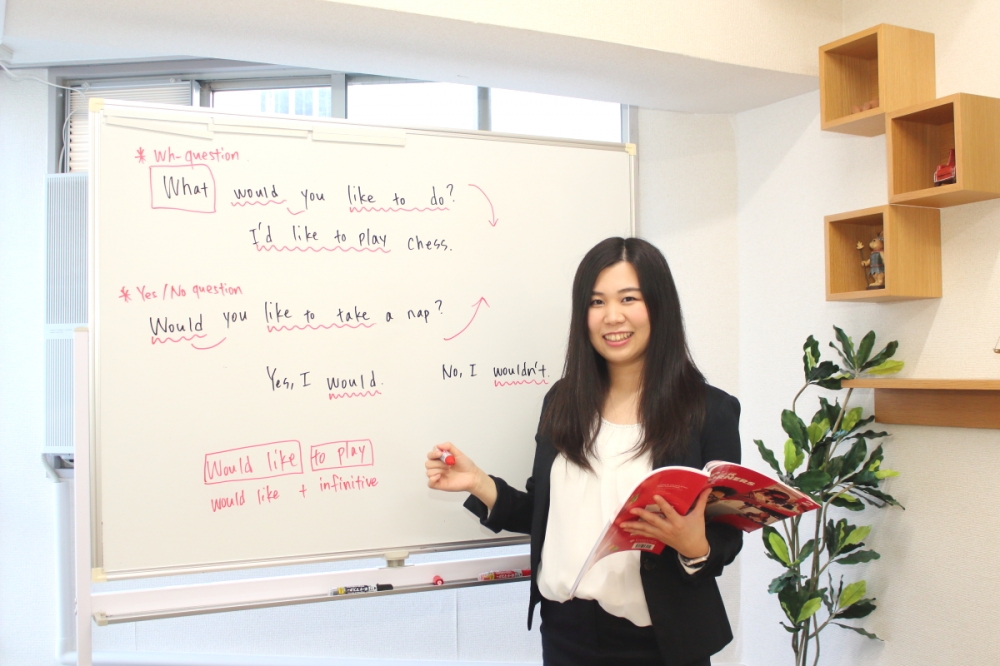 * Wh-question
What would you like to do?
I'd like to play chess.
* Yes/No question
Would you like to take a nap?
Yes, I would.
No, I wouldn't.
Would like to play
would like + infinitive